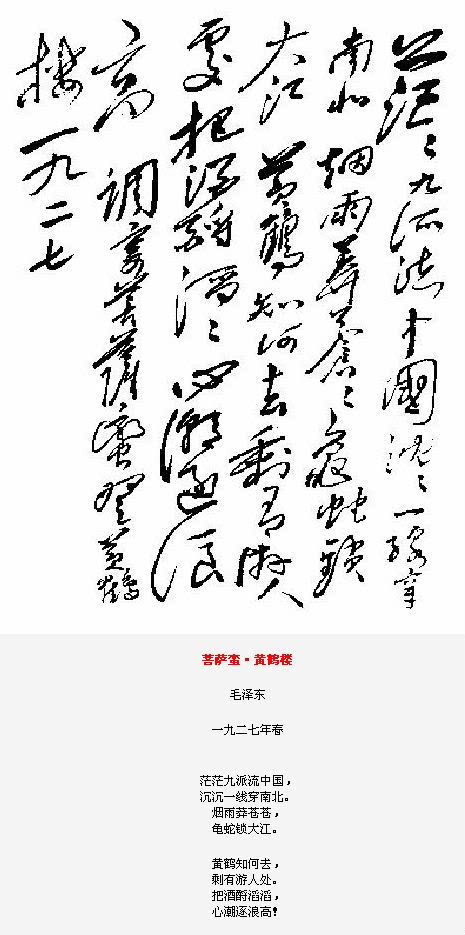 茫々九派流中國沉々一線穿
南北烟雨莽蒼々龜蛇鎖
大江黃鶴知何去剩有游人
處把酒酹滔々心潮逐浪
高 調寄菩薩蠻登黃鶴
樓一九二七
菩萨蛮·黄鹤楼
毛泽东
一九二七年春
茫茫九派流中国，
沉沉一线穿南北。
烟雨莽苍苍，
龟蛇锁大江。
黄鹤知何去，
剩有游人处。
把酒酹滔滔，
心潮逐浪高！